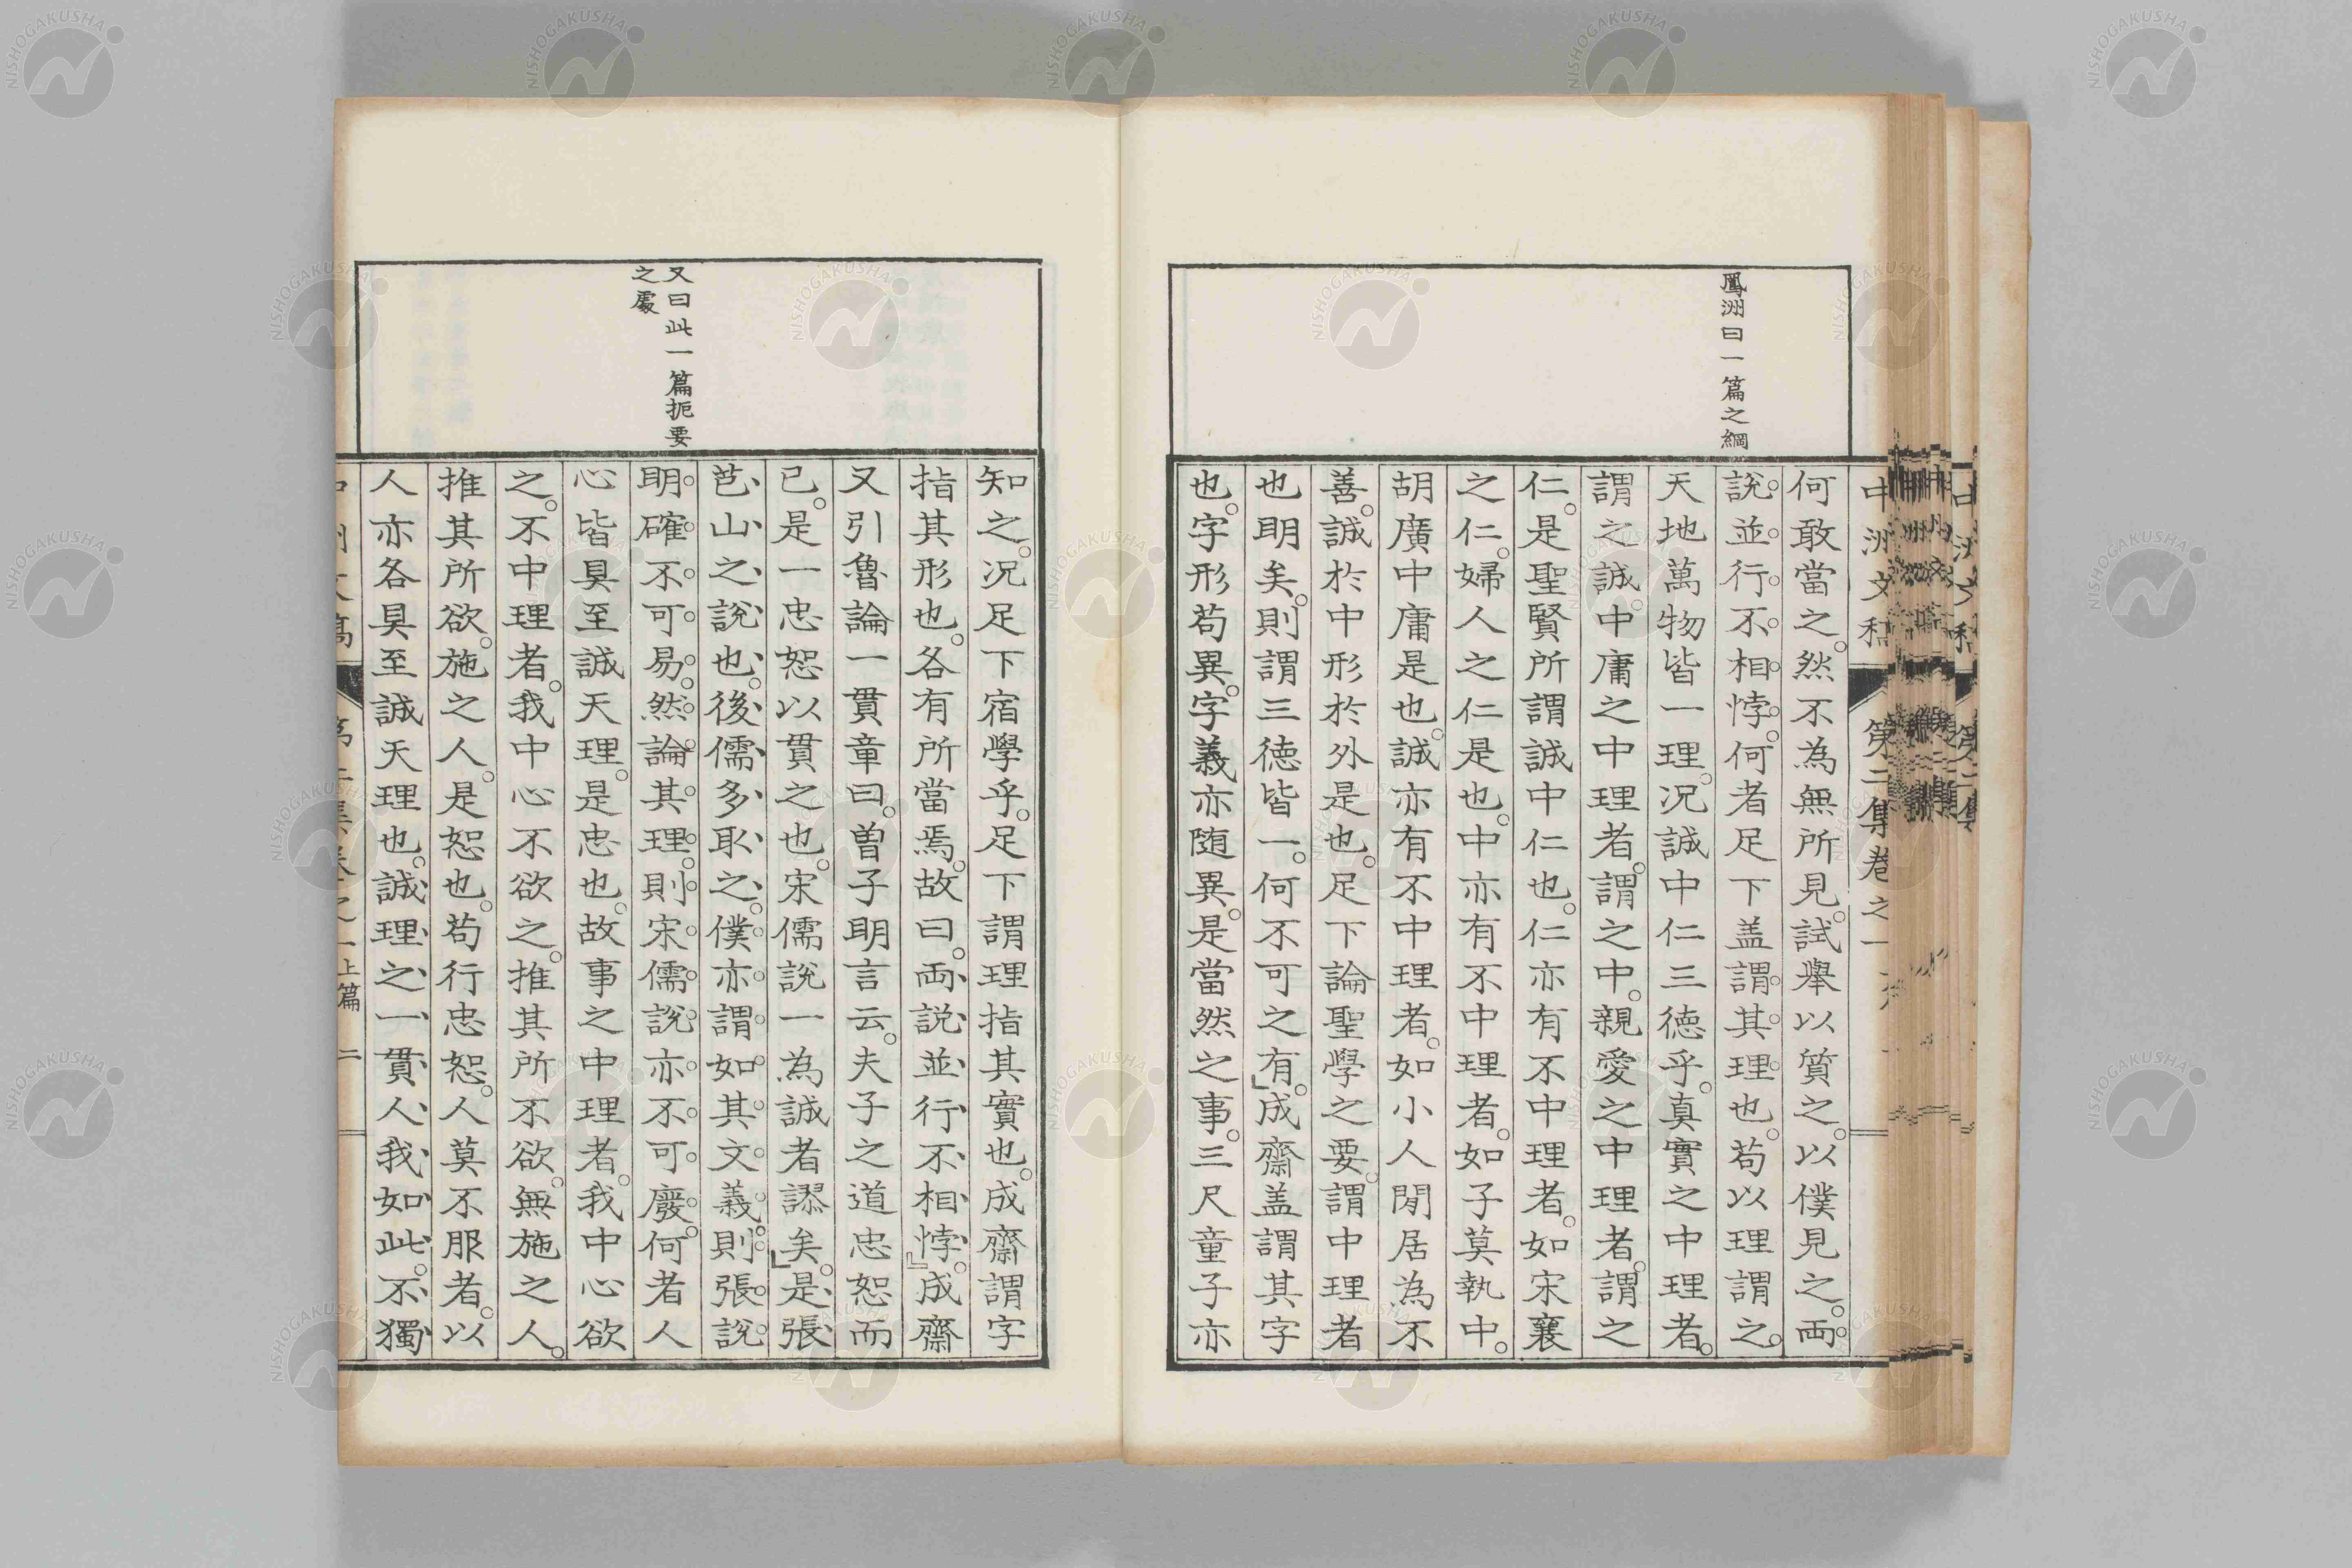 鳳洲曰一篇之綱
何敢當之。然不為無所見。試舉以質之。以僕見之。兩
說並行。不相悖。何者足下蓋謂其理也。苟以理謂之。
天地萬物皆一理。況誠中仁三德乎。真實之中理者。
謂之誠。中庸之中理者。謂之中。親愛之中理者。謂之
仁。是聖賢所謂誠中仁也。仁亦有不中理者。如宋襄
之仁。婦人之仁是也。中亦有不中理者。如子莫執中。
胡廣中庸是也。誠亦有不中理者。如小人閒居為不
善。誠於中形於外是也。足下論聖學之要。謂中理者
也明矣。則謂三德皆一。何不可之有。」成齋蓋謂其字
也。字形苟異。字義亦隨異。是當然之事。三尺童子亦
又曰此一篇扼要
之處
知之。況足下宿學乎。足下謂理指其實也。成齋謂字
指其形也。各有所當焉。故曰。兩說並行不相悖。」成齋
又引魯論一貫章曰。曾子明言云。夫子之道忠恕而
已。是一忠恕以貫之也。宋儒說一為誠者謬矣。」是張
芭山之說也。後儒多取之。僕亦謂如其文義則張說
明確不可易。然論其理。則宋儒說亦不可廢。何者人
心皆具至誠天理。是忠也。故事之中理者。我中心欲
之。不中理者。我中心不欲之。推其所不欲。無施之人。
推其所欲。施之人。是恕也。苟行忠恕。人莫不服者。以
人亦各具至誠天理也。誠理之一貫人我如此。不獨
上篇 二
中洲文稿 第二集卷之一